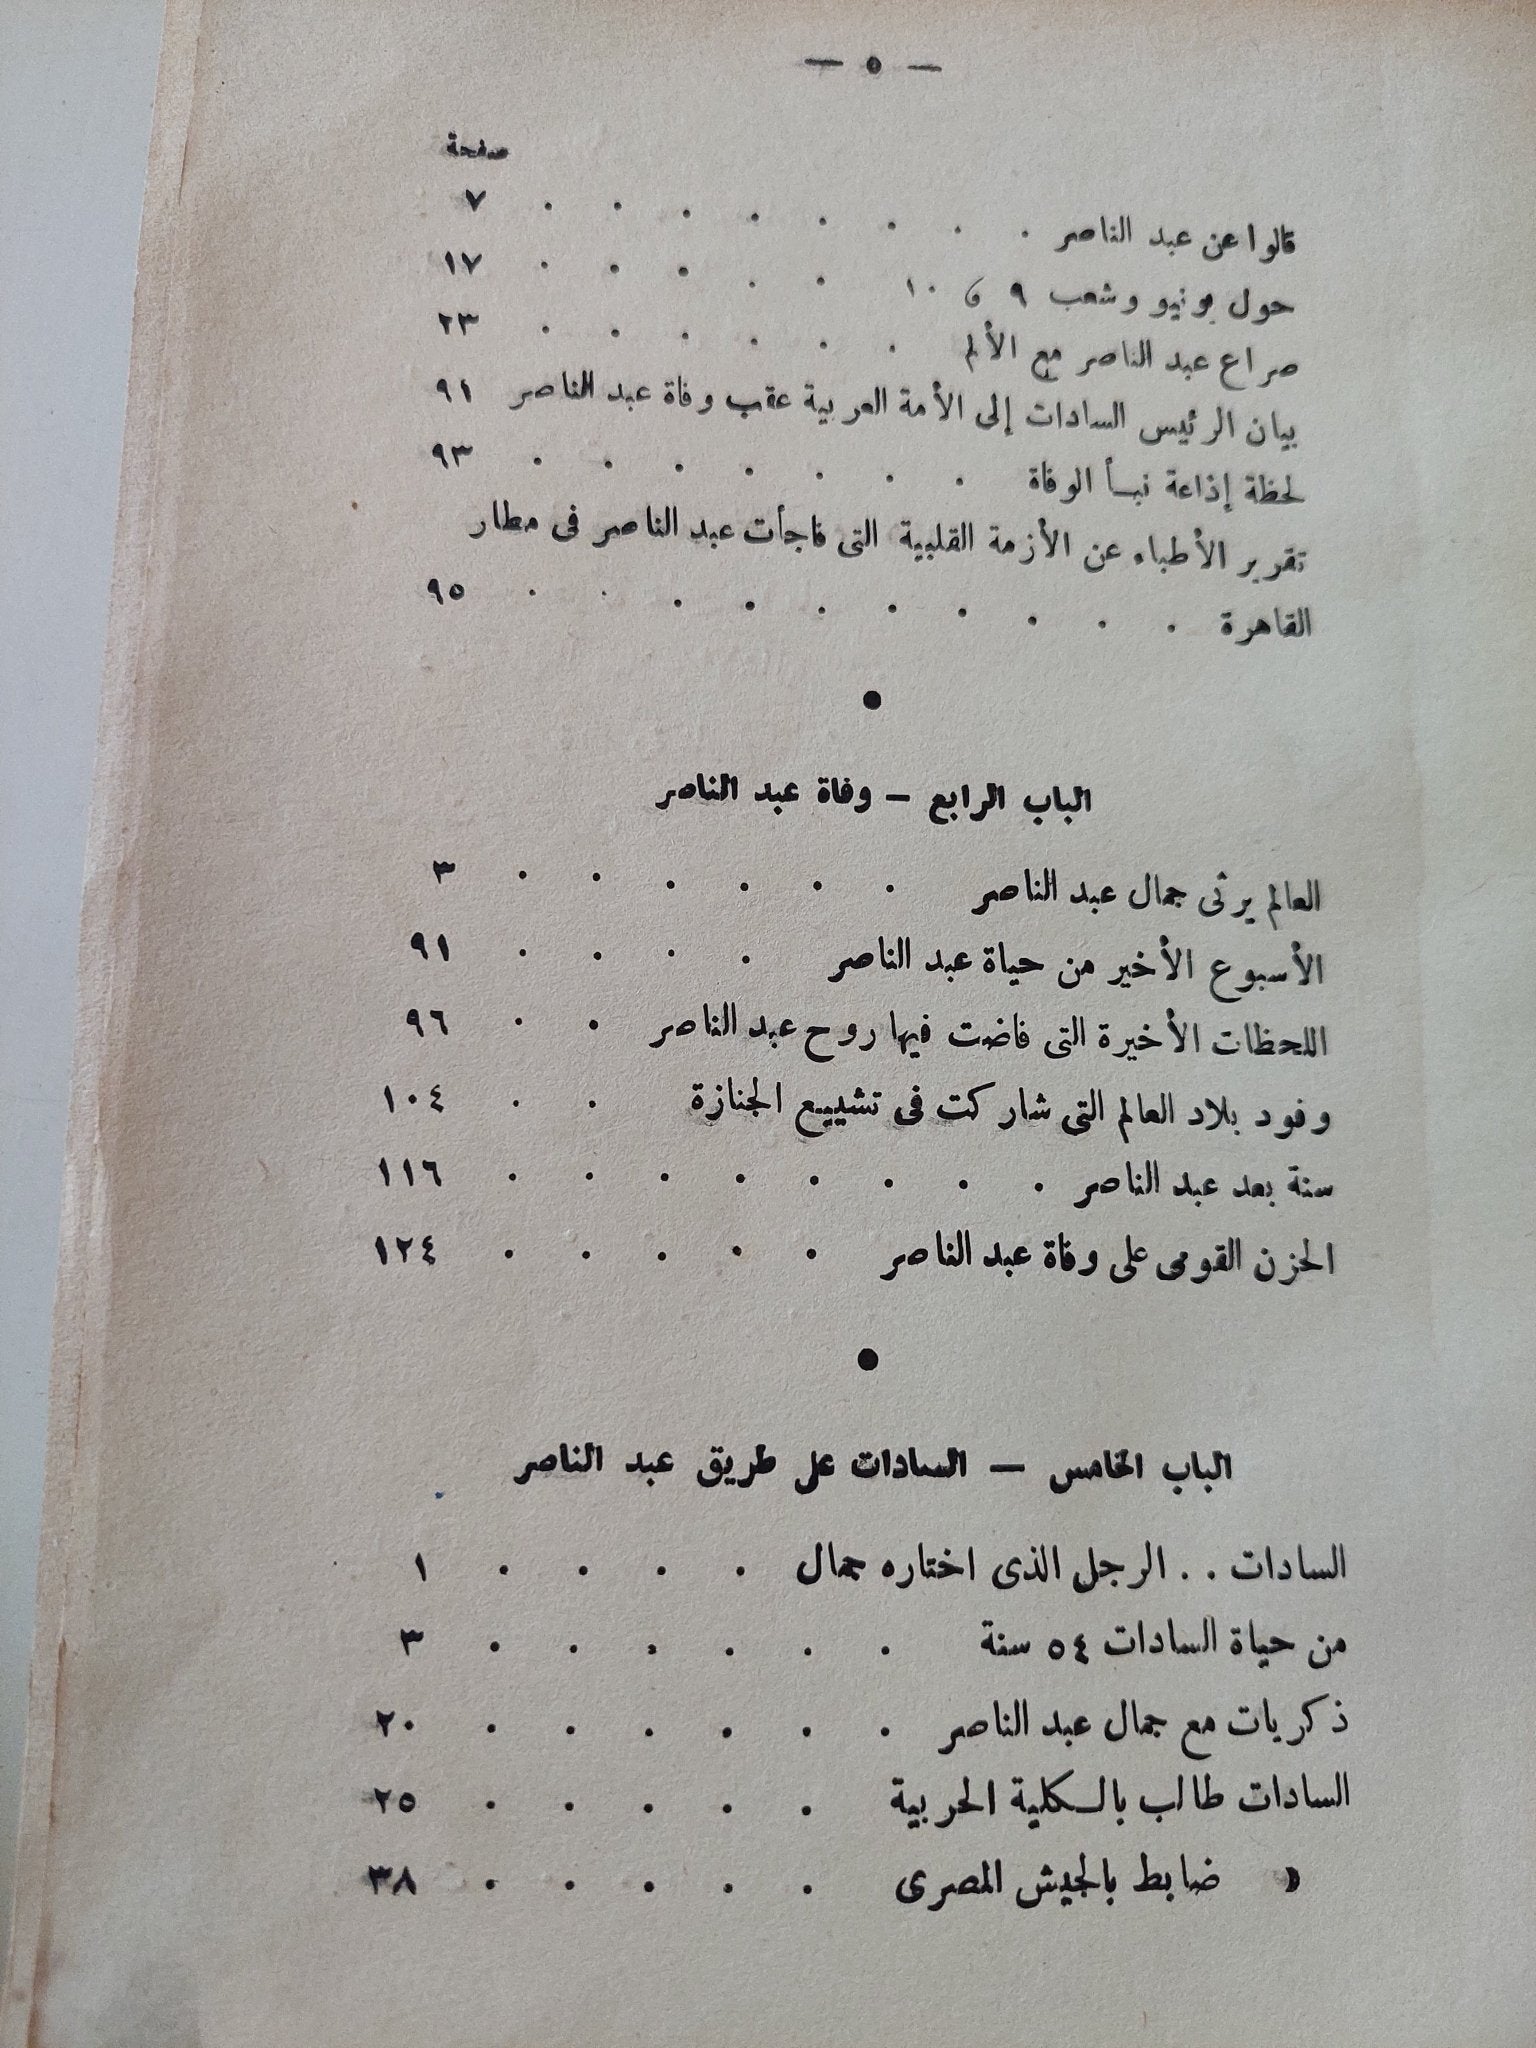 — ٥ —
صفحة
قالوا عن عبد الناصر . . . . . . . . ٧
حول يونيو وشعب ٩ و ١٠ . . . . . ١٧
صراع عبد الناصر مع الألم . . . . . . ٢٣
بيان الرئيس السادات إلى الأمة العربية عقب وفاة عبد الناصر ٩١
لحظة إذاعة نبأ الوفاة . . . . . . . ٩٣
تقرير الأطباء عن الأزمة القلبية التى فاجأت عبد الناصر فى مطار
القاهرة . . . . . . . . . . ٩٥
●
الباب الرابع — وفاة عبد الناصر
العالم يرثى جمال عبد الناصر . . . . . . ٣
الأسبوع الأخير من حياة عبد الناصر . . . . ٩١
اللحظات الأخيرة التى فاضت فيها روح عبد الناصر . . ٩٦
وفود بلاد العالم التى شاركت فى تشييع الجنازة . . ١٠٤
سنة بعد عبد الناصر . . . . . . . . ١١٦
الحزن القومى على وفاة عبد الناصر . . . . . ١٢٤
●
الباب الخامس — السادات على طريق عبد الناصر
السادات . . الرجل الذى اختاره جمال . . . . ١
من حياة السادات ٥٤ سنة . . . . . . ٣
ذكريات مع جمال عبد الناصر . . . . . . ٢٠
السادات طالب بالكلية الحربية . . . . . ٢٥
» ضابط بالجيش المصرى . . . . . ٣٨